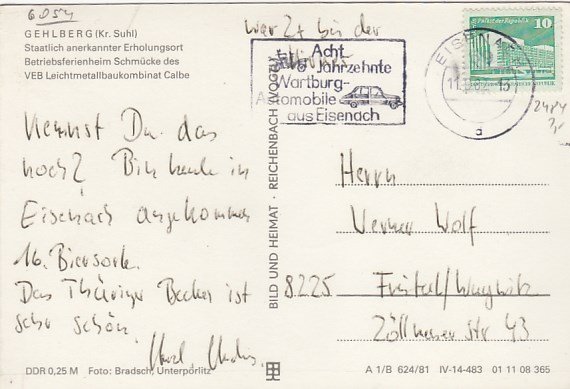 6054
GEHLBERG (Kr. Suhl)
Staatlich anerkannter Erholungsort
Betriebsferienheim Schmücke des
VEB Leichtmetallbaukombinat Calbe
war z. bei der
Acht
Jahrzehnte
Wartburg-
Automobile
aus Eisenach
EISENA
Palast der Republik 10
DDR
Kennst Du das
noch? Bin heute in
Eisenach angekommen
16. Biersorte.
Das Thüringer Becken ist
sehr schön.
BILD UND HEIMAT · REICHENBACH (VOGTL)
Herrn
Werner Wolf
8225 Freital/Wurgwitz
Zöllmener Str 43
DDR 0,25 M Foto: Bradsch, Unterpörlitz
A 1/B 624/81 IV-14-483 01 11 08 365